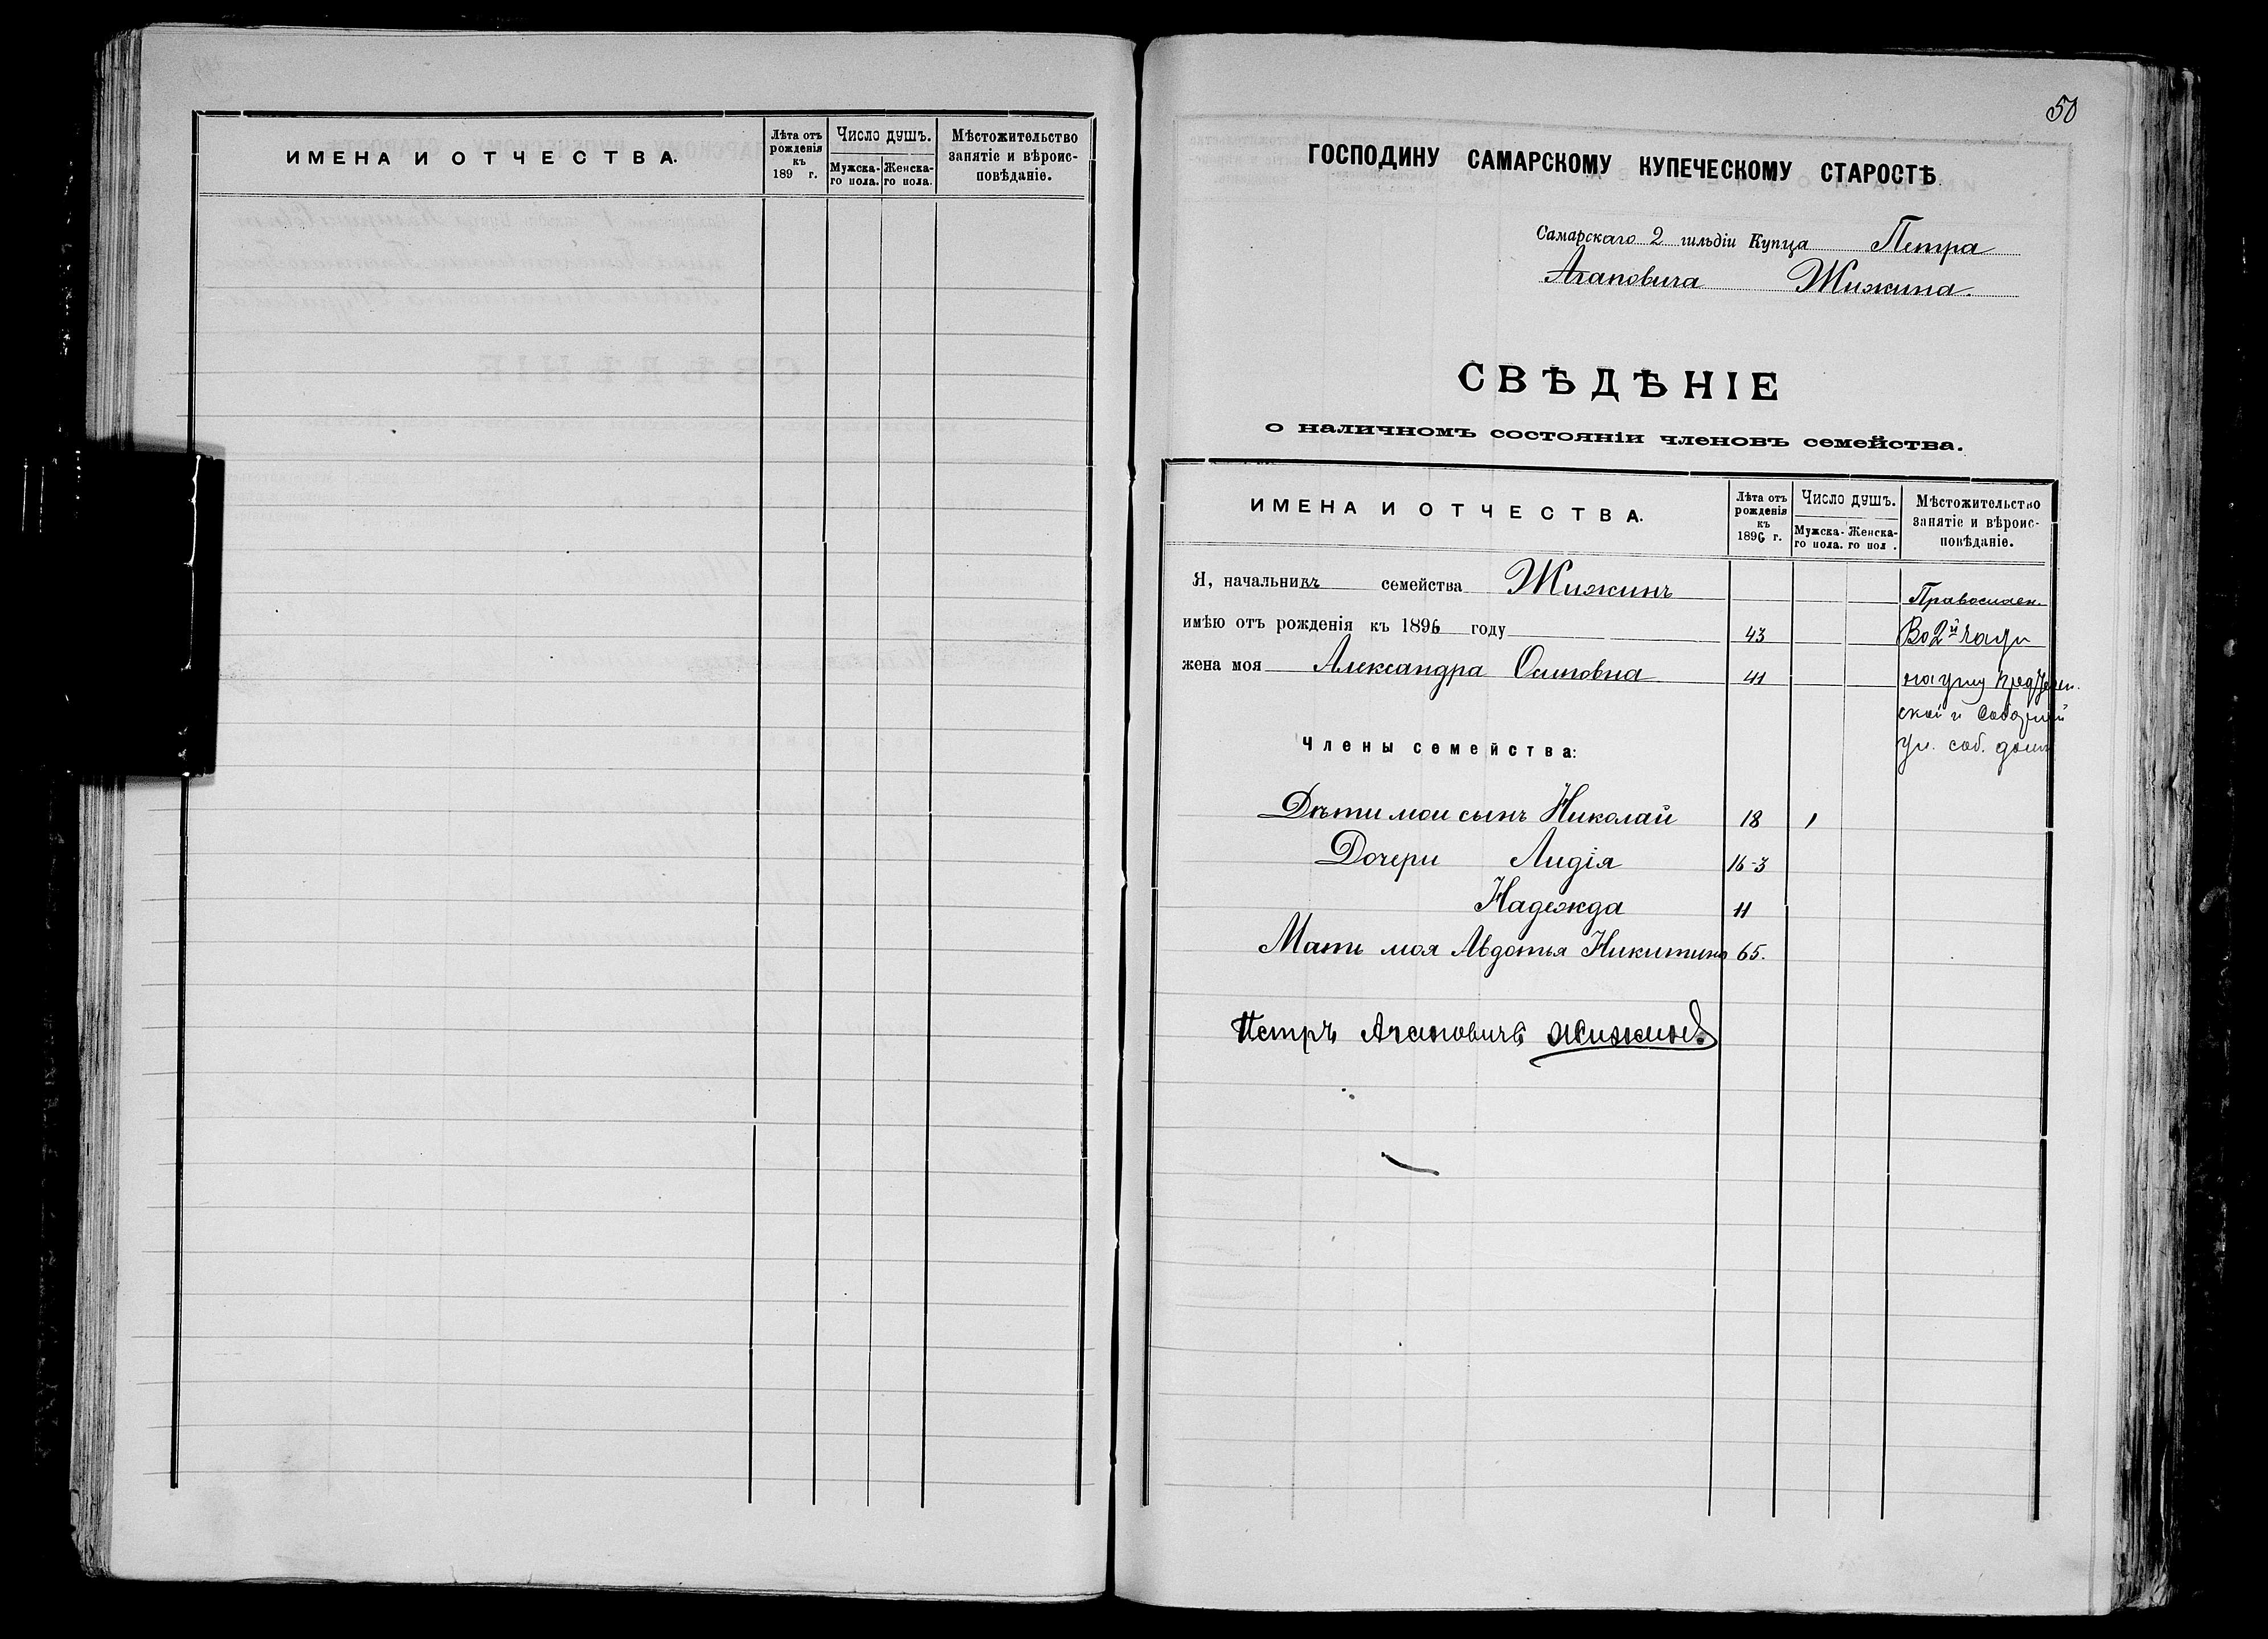 ИМЕНА И ОТЧЕСТВА.
Лѣта отъ рожденія къ 189 г.
Число душъ.
Мужска-го пола.
Женска-го пола.
Мѣстожительство занятіе и вѣроис-повѣданіе.
50
ГОСПОДИНУ САМАРСКОМУ КУПЕЧЕСКОМУ СТАРОСТѢ
Самарскаго 2 гильдіи Купца Петра
Агаповича Жижина.
СВѢДѢНІЕ
о наличномъ состояніи членовъ семейства.
ИМЕНА И ОТЧЕСТВА.
Лѣта отъ рожденія къ 1896 г.
Число душъ.
Мужска-го пола.
Женска-го пол .
Мѣстожительство занятіе и вѣроис-повѣданіе.
Я, начальникъ семейства Жижинъ Православн.
имѣю отъ рожденія къ 1896 году 43 Во 2й части
жена моя Александра Осиповна 41 на углу
ской и Соборной
ул. соб. домъ
Члены семейства:
Дѣти мои сынъ Николай 18 1
Дочери Лидія 16-3
Надежда 11
Мать моя Авдотья Никитина 65.
Петръ Агаповичъ Жижинъ